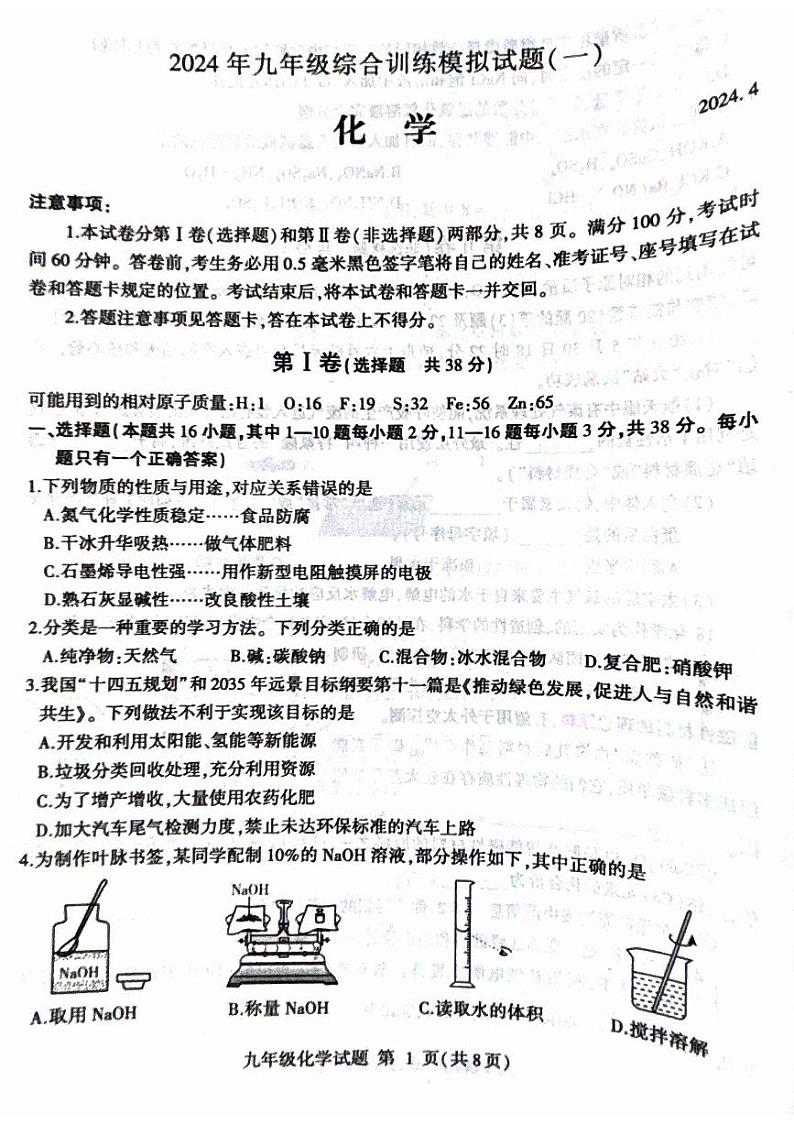 2024年九年级综合训练模拟试题(一)
2024.4
化 学
注意事项:
1.本试卷分第Ⅰ卷(选择题)和第Ⅱ卷(非选择题)两部分,共8页。满分100分,考试时
间60分钟。答卷前,考生务必用0.5毫米黑色签字笔将自己的姓名、准考证号、座号填写在试
卷和答题卡规定的位置。考试结束后,将本试卷和答题卡一并交回。
2.答题注意事项见答题卡,答在本试卷上不得分。
第Ⅰ卷(选择题 共38分)
可能用到的相对原子质量:H:1 O:16 F:19 S:32 Fe:56 Zn:65
一、选择题(本题共16小题,其中1—10题每小题2分,11—16题每小题3分,共38分。每小
题只有一个正确答案)
1.下列物质的性质与用途,对应关系错误的是
A.氮气化学性质稳定……食品防腐
B.干冰升华吸热……做气体肥料
C.石墨烯导电性强……用作新型电阻触摸屏的电极
D.熟石灰显碱性……改良酸性土壤
2.分类是一种重要的学习方法。下列分类正确的是
A.纯净物:天然气 B.碱:碳酸钠 C.混合物:冰水混合物 D.复合肥:硝酸钾
3.我国“十四五规划”和2035年远景目标纲要第十一篇是《推动绿色发展,促进人与自然和谐
共生》。下列做法不利于实现该目标的是
A.开发和利用太阳能、氢能等新能源
B.垃圾分类回收处理,充分利用资源
C.为了增产增收,大量使用农药化肥
D.加大汽车尾气检测力度,禁止未达环保标准的汽车上路
4.为制作叶脉书签,某同学配制10%的NaOH溶液,部分操作如下,其中正确的是
NaOH
NaOH
A.取用NaOH B.称量NaOH C.读取水的体积 D.搅拌溶解
九年级化学试题 第 1 页(共8页)